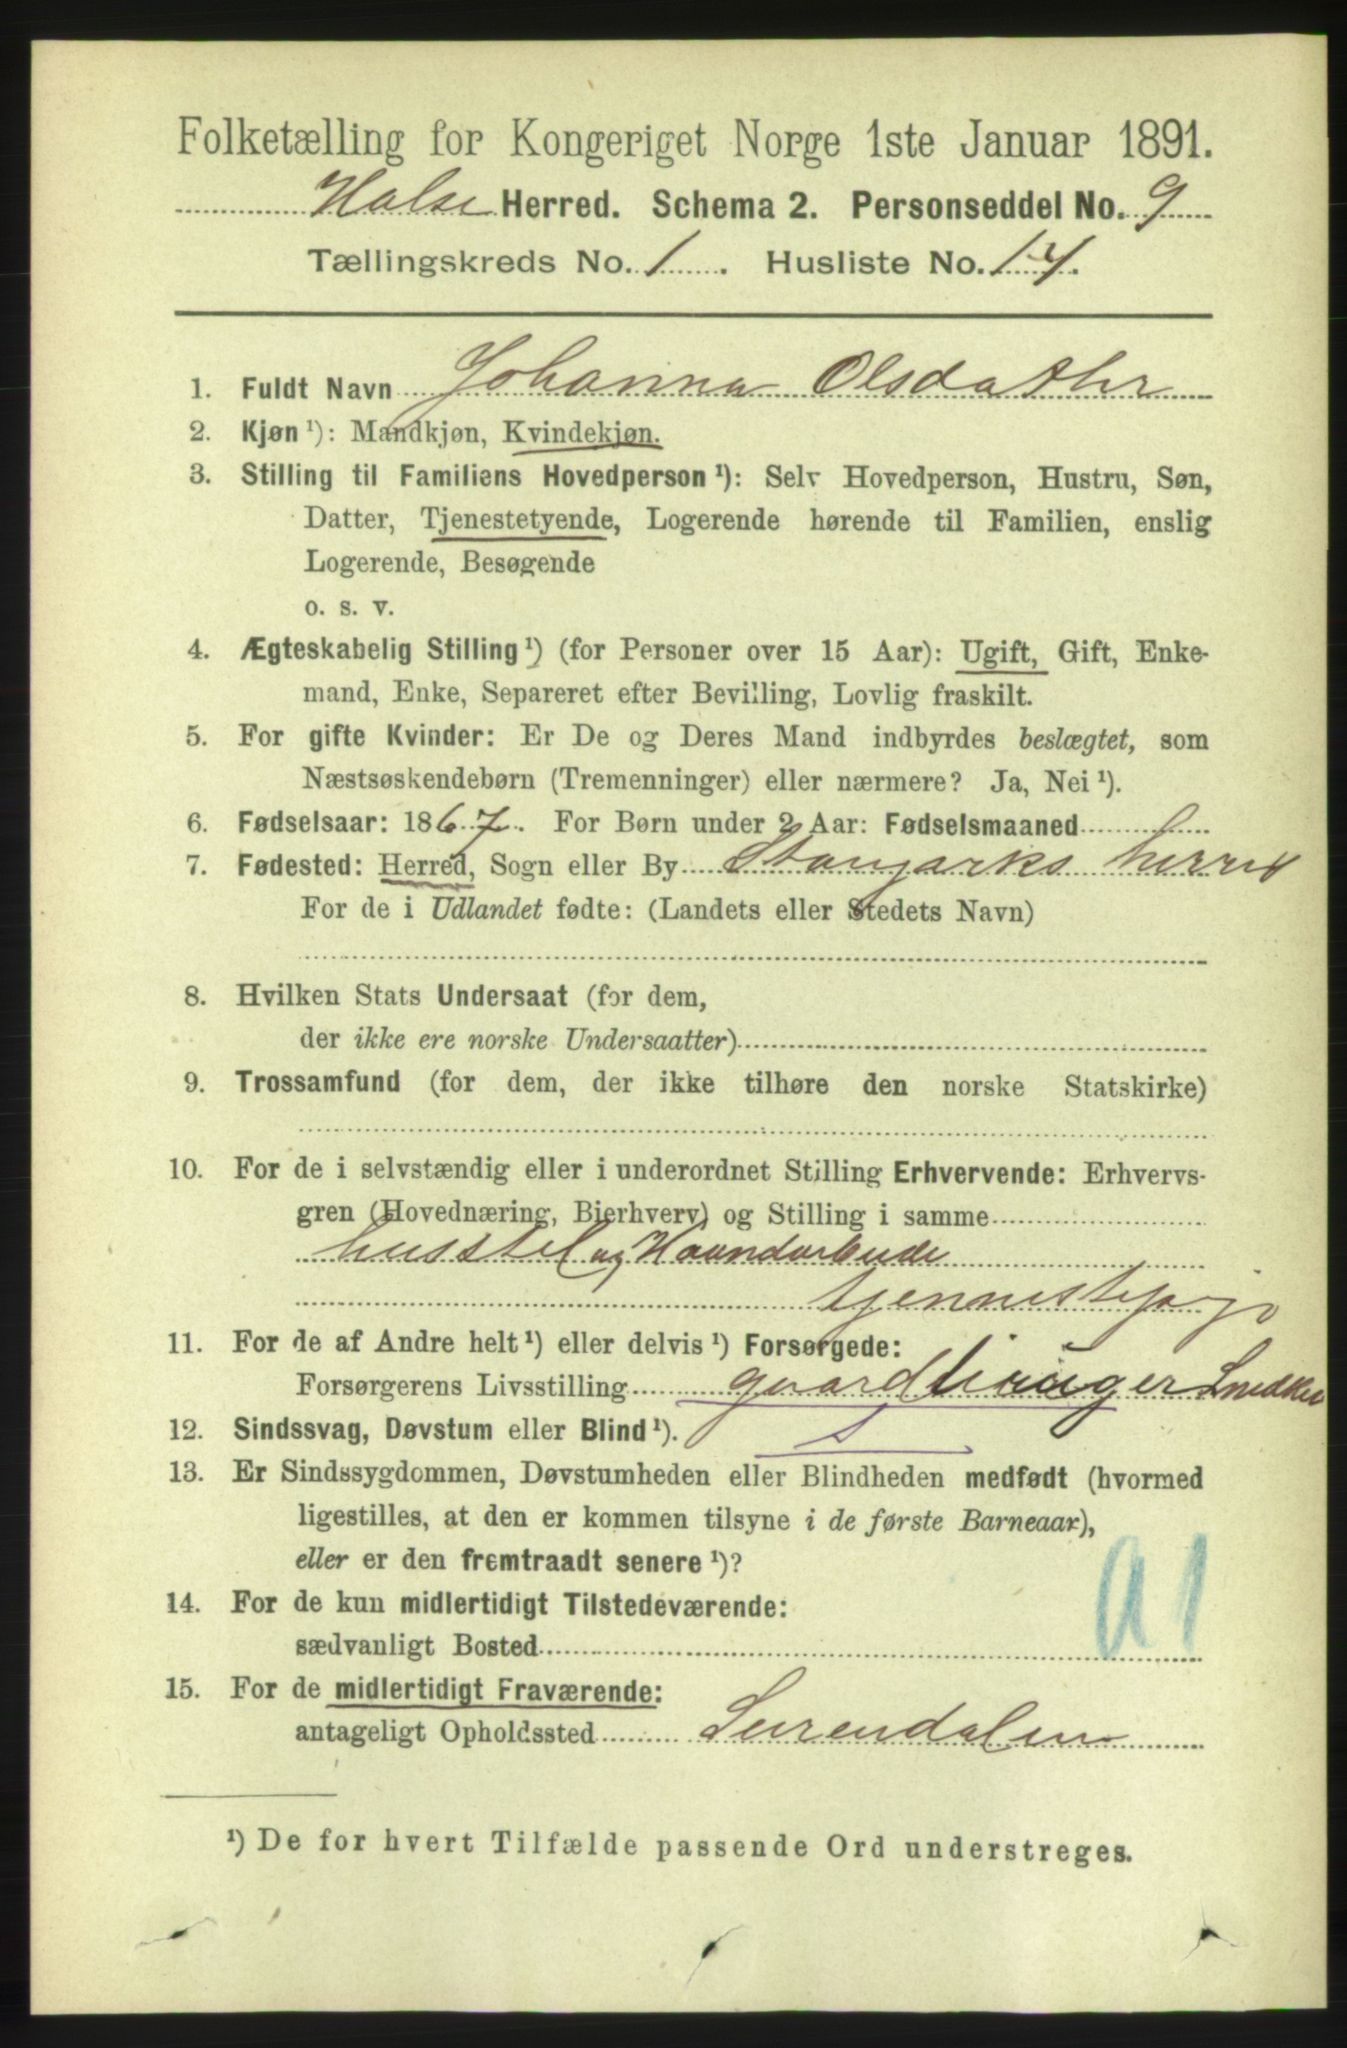 Folketælling for Kongeriget Norge 1ste Januar 1891.
Halse Herred. Schema 2. Personseddel No. 9
Tællingskreds No. 1. Husliste No. 14.
1. Fuldt Navn Johanna Olsdather
2. Kjøn ¹): Mandkjøn, Kvindekjøn.
3. Stilling til Familiens Hovedperson ¹): Selv Hovedperson, Hustru, Søn,
Datter, Tjenestetyende, Logerende hørende til Familien, enslig
Logerende, Besøgende
o. s. v.
4. Ægteskabelig Stilling ¹) (for Personer over 15 Aar): Ugift, Gift, Enke-
mand, Enke, Separeret efter Bevilling, Lovlig fraskilt.
5. For gifte Kvinder: Er De og Deres Mand indbyrdes beslægtet, som
Næstsøskendebørn (Tremenninger) eller nærmere? Ja, Nei ¹).
6. Fødselsaar: 1867. For Børn under 2 Aar: Fødselsmaaned
7. Fødested: Herred, Sogn eller By Stangvarks herred
For de i Udlandet fødte: (Landets eller Stedets Navn)
8. Hvilken Stats Undersaat (for dem,
der ikke ere norske Undersaatter)
9. Trossamfund (for dem, der ikke tilhøre den norske Statskirke)
10. For de i selvstændig eller i underordnet Stilling Erhvervende: Erhvervs-
gren (Hovednæring, Bierhverv) og Stilling i samme
husstel og Haandarbeide
11. For de af Andre helt ¹) eller delvis ¹) Forsørgede:
Forsørgerens Livsstilling gaardbruger Snedker
12. Sindssvag, Døvstum eller Blind ¹).
13. Er Sindssygdommen, Døvstumheden eller Blindheden medfødt (hvormed
ligestilles, at den er kommen tilsyne i de første Barneaar),
eller er den fremtraadt senere ¹)?
14. For de kun midlertidigt Tilstedeværende:
sædvanligt Bosted
15. For de midlertidigt Fraværende:
antageligt Opholdssted Surendalen
¹) De for hvert Tilfælde passende Ord understreges.